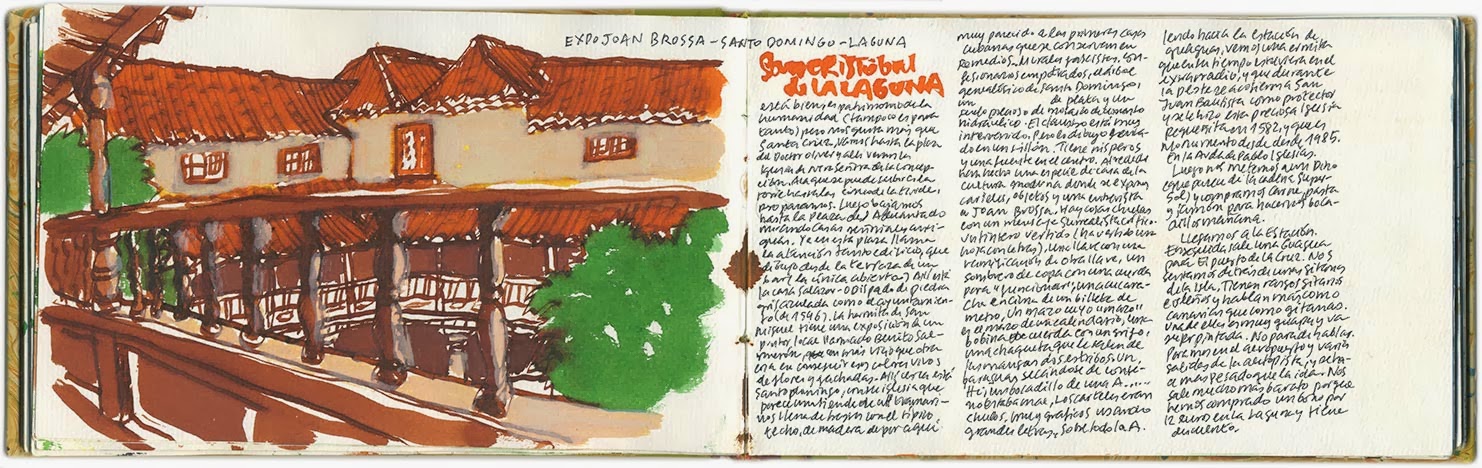 EXPO JOAN BROSSA - SANTO DOMINGO - LAGUNA
San CRISTÓBAL
de LA LAGUNA
está bien, es patrimonio de la
humanidad (tampoco es para
tanto) pero nos gusta más que
Santa Cruz. Vamos hasta la plaza
del Doctor Olivera y allí vemos la
iglesia de nuestra señora de la Concep-
ción. A la que se puede subir a la
torre hasta las cinco de la tarde,
pero pasamos. Luego bajamos
hasta la plaza del Adelantado
mirando casas señoriales y anti-
guas. Ya en esta plaza llama
la atención tanto edificio, que
dibujo desde la terraza de un
bar (la única abierta). Allí está
la casa Salazar - Obispado de piedra
gris azulada como el ayuntamien-
to (de 1546). La ermita de San
Miguel tiene una exposición de un
pintor local llamado Benito
en más viejo que otra
cosa en conseguir en colores vivos
de flores y fachadas. Allí cerca está
Santo Domingo, con su iglesia que
parece un tienda de
nos llena de bajos con el típico
techo, de madera de por aquí
muy parecido a las primeras casas
cubanas que se conservan en
Remedios. Murales fascistas. Con-
fesionarios empotrados, el árbol
genealógico de Santo Domingo,
un de plata y un
suelo precioso de mosaico de cemento
hidráulico. El claustro está muy
intervenido. Pero lo dibujo senta-
do en un sillón. Tiene nísperos
y una fuente en el centro. Alrededor
han hecho una especie de casa de la
cultura moderna donde se exponen
carteles, objetos y una entrevista
a Joan Brossa. Hay cosas chulas
con un mensaje surrealista crítico.
Un tintero vertido (ha vertido una
hoja con letras), una llave con una
ramificación de otra llave, un
sombrero de copa con una cuerda
para "funcionar", una cucara-
cha encima de un billete de
metro, un mazo cuyo "mazo"
es el mazo de un calendario, una
bobina de cuerda con un grifo,
una chaqueta que le salen de
las mangas dos estribos, un
paraguas secándose de confe-
tti; un bocadillo de una A......
no estaba mal, los carteles eran
chulos, muy gráficos usando
grandes letras, sobre todo la A.
Yendo hacia la estación de
guaguas, vemos una ermita
que en tiempo estuviera en el
extrarradio, y que durante
la peste se acogieron a San
Juan Bautista como protector
y se le hizo esta preciosa iglesia
pequeñita en 1582, y que es
Monumento desde desde 1985.
En la Avda de Pablo Iglesias.
Luego nos metemos a un Dino
(que parece de la cadena Super-
Sol) y compramos carne, pasta
y jamón para hacernos boca-
dillo mañana.
Llegamos a la Estación.
Enseguida sale una Guagua
para El Puerto de la Cruz. Nos
sentamos detrás de unas gitanas
de la isla. Tienen rasgos gitanos
costeños y hablan más como
canarias que como gitanas.
Una de ellas es muy guapa y va
super pintada. No para de hablar.
Paramos en el aeropuerto y varias
salidas de la autopista, y se ha-
ce más pesado que la ida. Nos
sale mucho más barato porque
hemos comprado un bono por
12 euro en la Laguna y tiene
descuento.